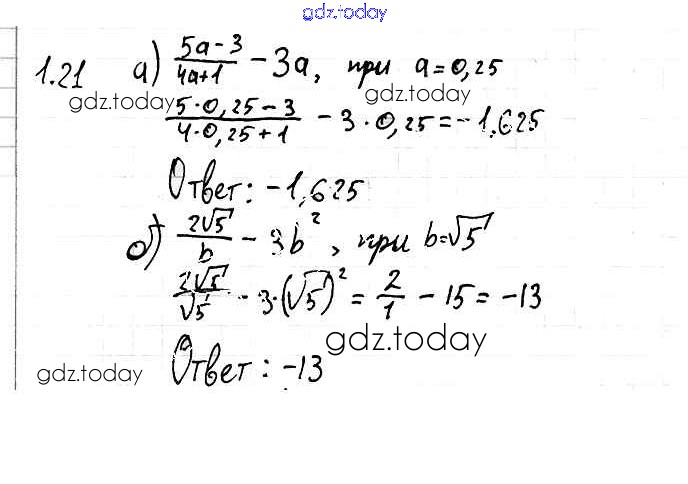 gdz.today
1.21 а) (5a-3)/(4a+1) - 3a, при a=0,25
gdz.today gdz.today
(5·0,25-3)/(4·0,25+1) - 3·0,25=-1,625
Ответ: -1,625
б) 2√5/b - 3b², при b=√5
2√5/√5 - 3·(√5)² = 2/1 - 15 = -13
gdz.today
Ответ: -13
gdz.today